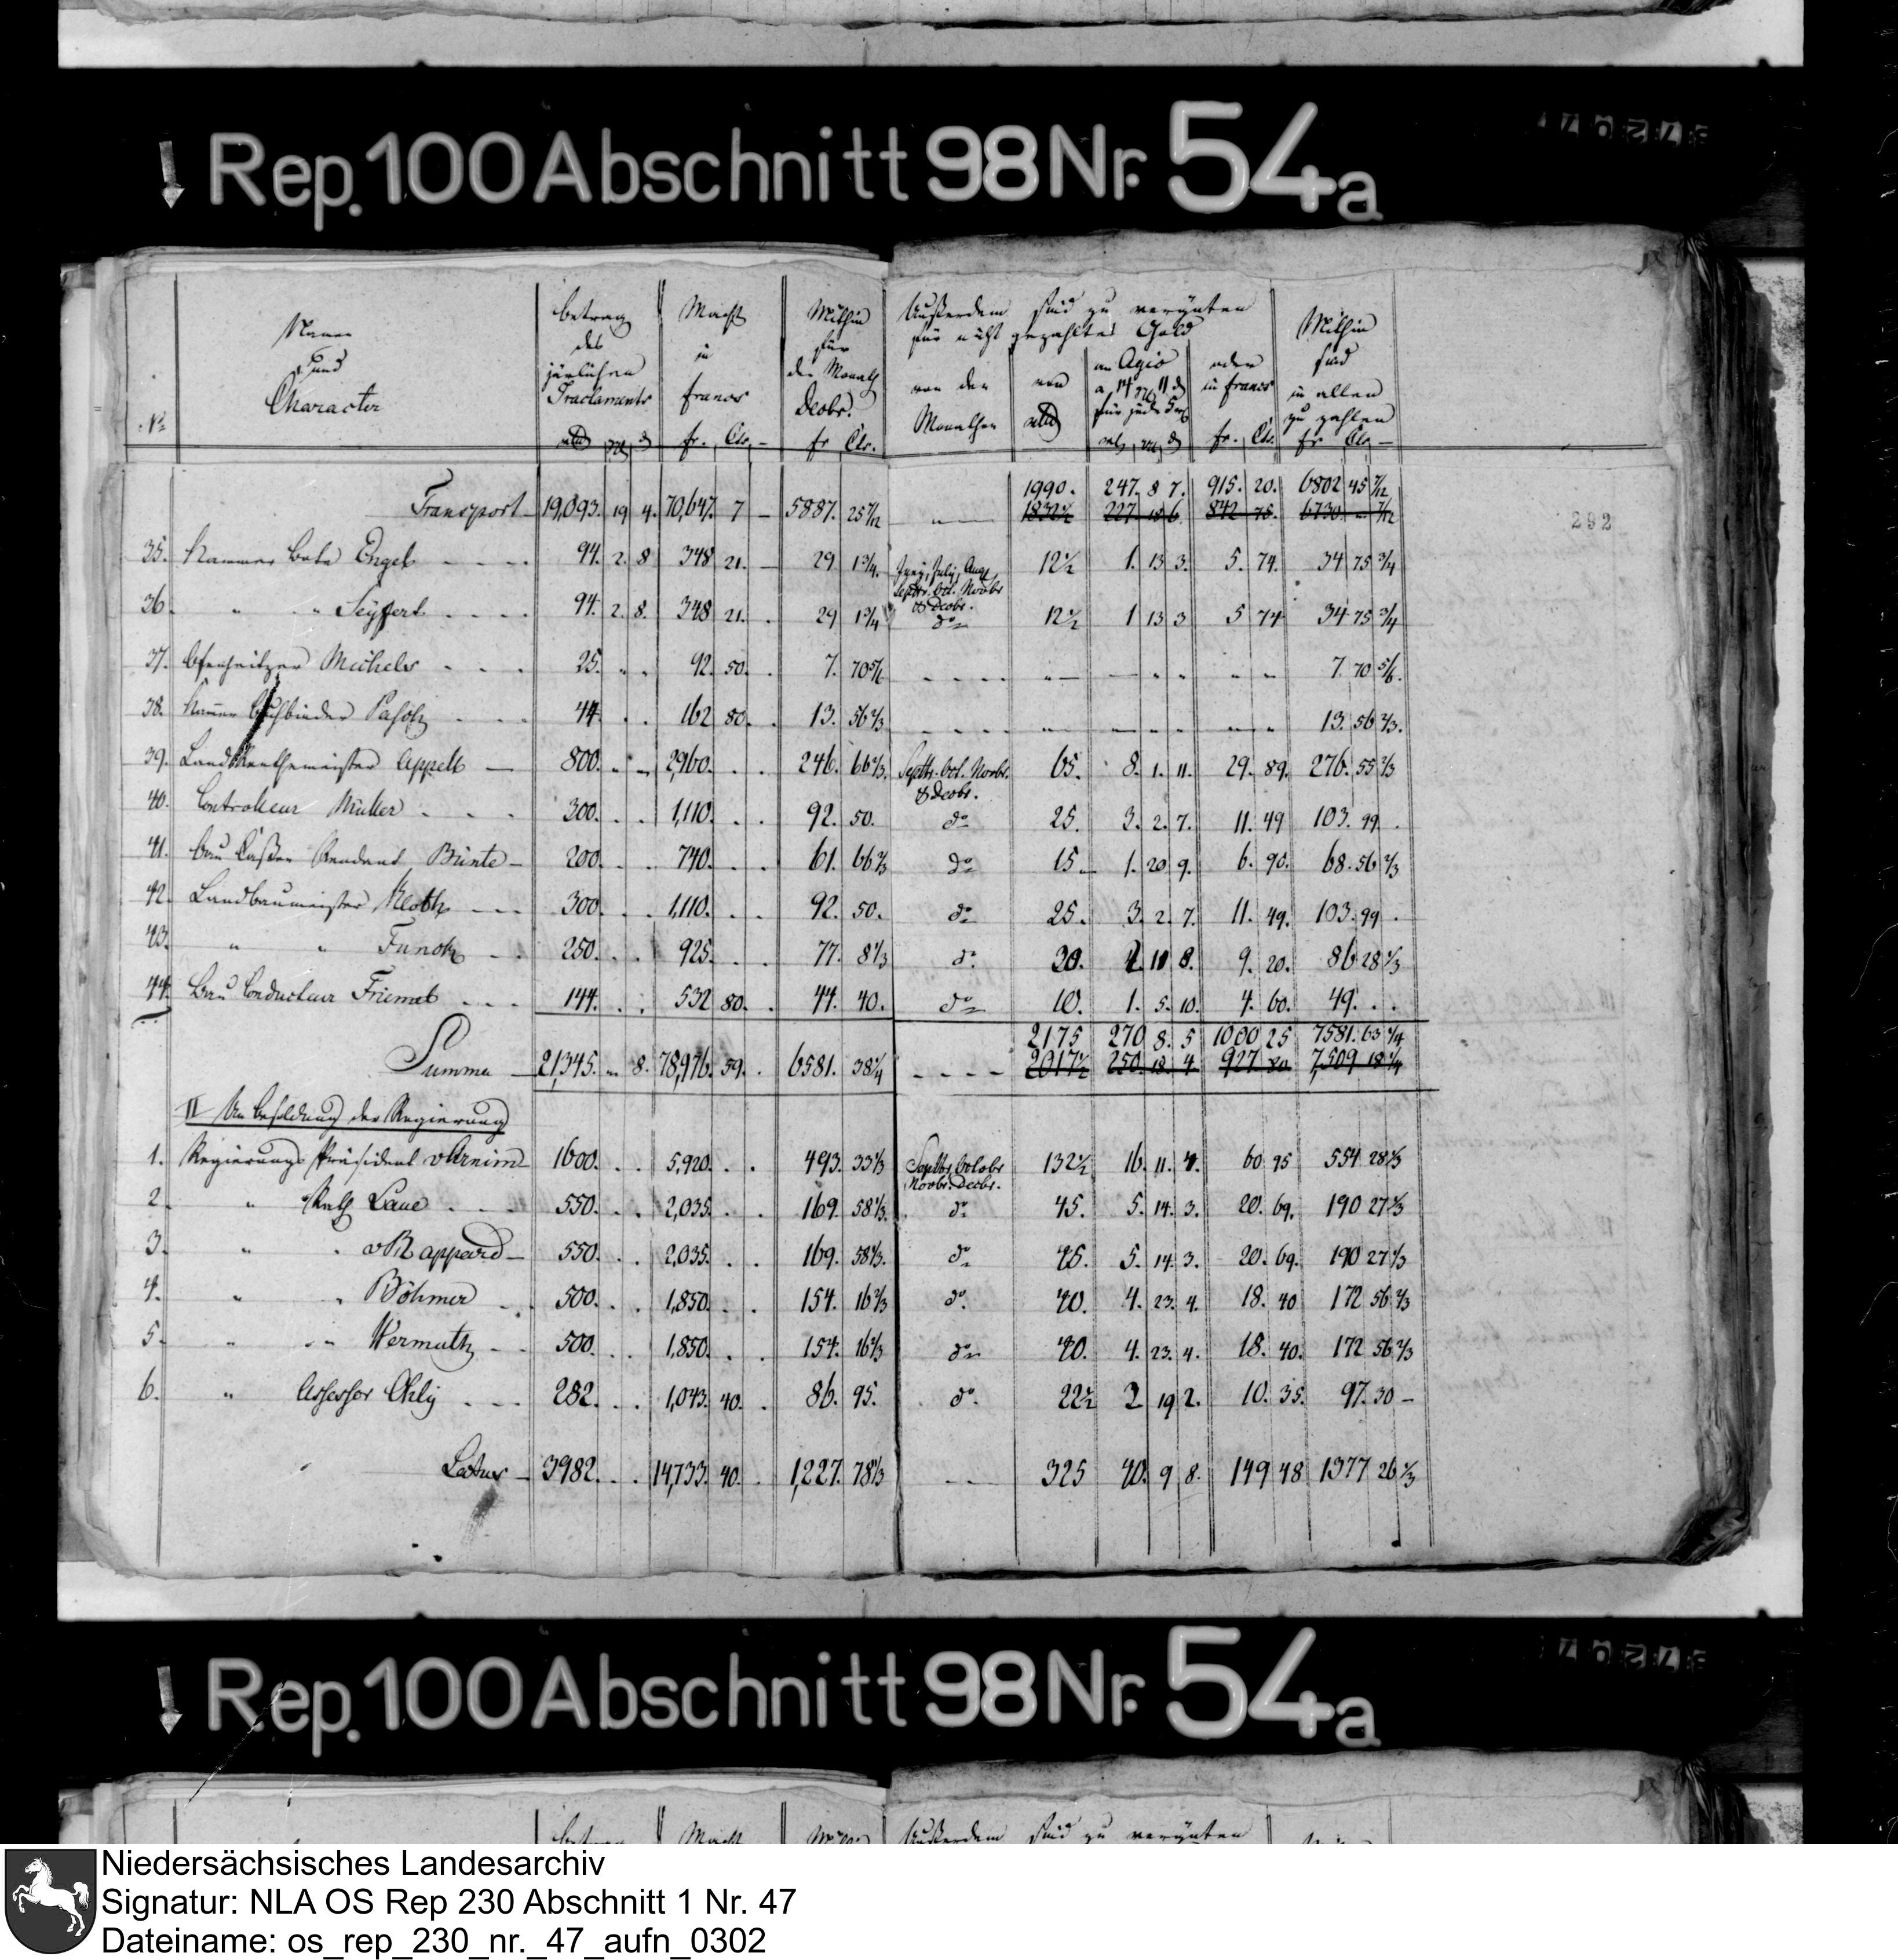 ↓ Rep. 100 Abschnitt 98 Nr. 54a
No
Name und Character
betrag des järlichen Tractaments
rtl ggl d
Macht in francs
fr. Cts.
Mithin für den Monath Decbr.
fr Cts.
Außerdem sind zu vergüten
für nicht gezahltes Gold
von den Monathen
von rtl
an Agio a 14 ggl 11 d für jede 5 rtl
rtl ggl d
oder in francs
fr. Cts.
Mithin sind in allen zu zahlen
fr Cts
1990. 247. 8 7. 915. 20. 6802 45 7/12
Transport 19,093. 19 4. 70,647. 7 - 5887. 25 7/12 1832½ 227 18 6 842 75. 6730 - 7/12
292
35. Kammer Bote Engel 94. 2. 8 348 21. 29 1¾. Juny, July, Aug, Septbr. Oct. Novbr & Decbr. 12½ 1. 13 3. 5. 74. 34 75¾
36. " " Seyfert 94. 2. 8. 348 21. 29 1¾ do 12½ 1 13 3 5 74 34 75¾
37. Ofenheitzer Michels 25. 92. 50. 7. 70 5/6 7. 70 5/6.
38. Kammer Buchbinder 44 162 80. 13. 56 2/3 13. 56 2/3.
39. Landrenthemeister Appelt 800. 2960. 246. 66 2/3. Septbr. Oct. Novbr. & Decbr. 65. 8. 1. 11. 29. 89. 276. 55 2/3
40. Controlleur Müller 300. 1,110. 92. 50. do 25. 3. 2. 7. 11. 49 103. 99
41. Bau Caßen Rendant Bünte 200. 740. 61. 66 2/3 do 15 1. 20 9. 6. 90. 68. 56 2/3
42. Landbaumeister Kloth 300. 1,110. 92. 50. do 25. 3. 2. 7. 11. 49. 103. 99
43. " " Funck 250. 925. 77. 8 1/3 do 20. 2 11 8. 9. 20. 86 28 1/3
44. Bau Conducteur Friemel 144. 532 80. 44. 40. do 10. 1. 5. 10. 4. 60. 49.
2175 270 8. 5 1000 25 7581. 63¼
Summa 21,345. 8. 78,976. 59. 6581. 38¼ 2017½ 250. 18. 4. 927 80 7,509 18¼
II An Besoldung der Regierung
1. Regierungs Präsident v Arnim 1600. 5,920. 493. 33 1/3 Septbr, Octobr Novbr. Decbr. 132½ 16. 11. 4. 60 95 554 28 1/3
2. " Rath Laue 550. 2,035. 169. 58 1/3. do 45. 5. 14. 3. 20. 69. 190 27 1/3
3. " " v Rappard 550. 2,035. 169. 58 1/3. do 45. 5. 14. 3. 20. 69. 190 27 1/3
4. " " Böhmer 500. 1,850. 154. 16 2/3 do. 40. 4. 23. 4. 18. 40 172 56 2/3
5. " " Wermuth 500. 1,850. 154. 16 2/3 do 40. 4. 23. 4. 18. 40. 172 56 2/3
6. " Assessor Ohly 282. 1,043. 40. 86. 95. do. 22½ 2 19 2. 10. 35. 97. 30 -
Latus 3982. 14,733. 40. 1,227. 78 1/3 325 40. 9 8. 149 48 1377 26 1/3
↓ Rep. 100 Abschnitt 98 Nr. 54a
Außerdem sind zu vergüten
Niedersächsisches Landesarchiv
Signatur: NLA OS Rep 230 Abschnitt 1 Nr. 47
Dateiname: os_rep_230_nr._47_aufn_0302